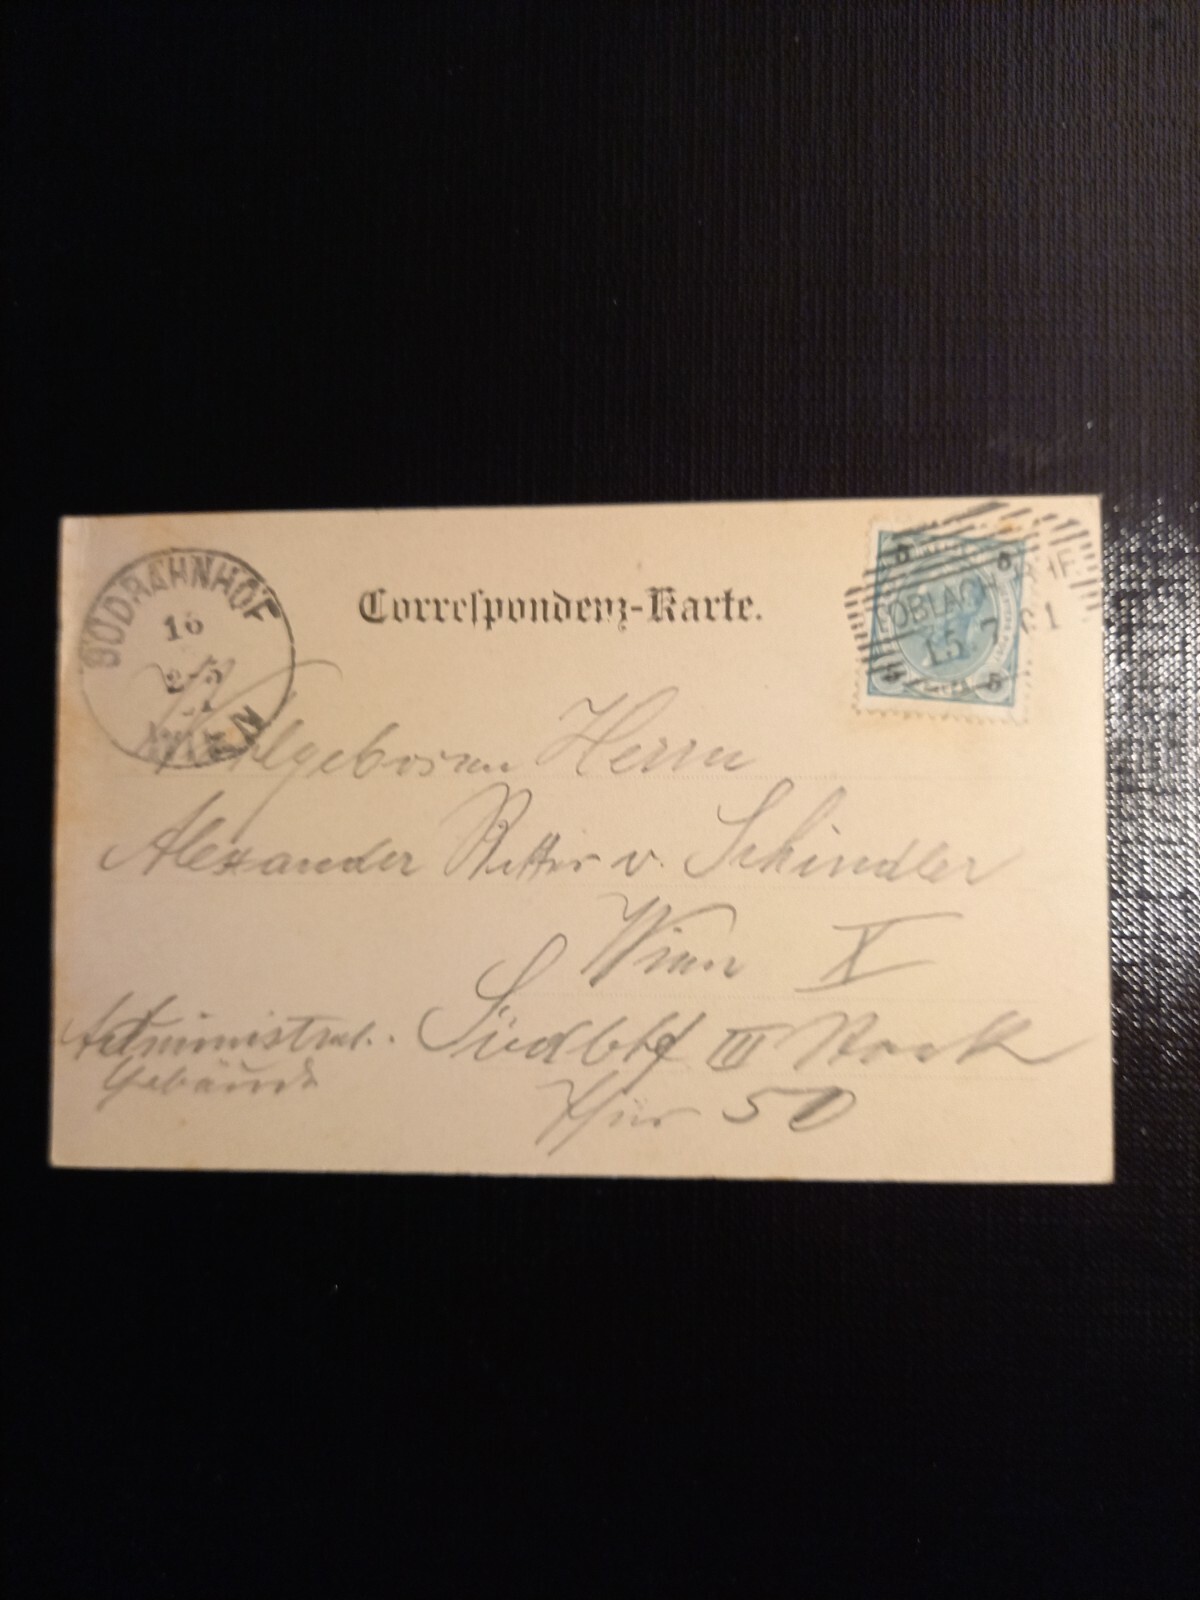 Correspondenz-Karte.
SÜDBAHNHOF
16
2-5
WIEN
TOBLACH
15. 7 01
5 5
5 5
Herrn
Alexander Ritter v. Schindler
Wien X
Administrat. Südbhf III Stock
Gebäude
Thür 50